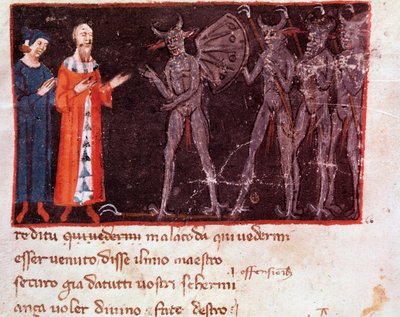 re ditu qui uedermi malacoda qui uedermi
esser uenuto disse ilmio maestro
securo gia datutti uostri schermi
ança uoler diuino fato destro